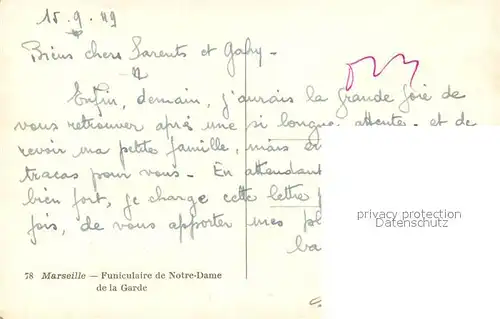 15.9.49
Biens chers Parents et Gaby -
Enfin, demain, j'aurais la grande joie de
vous retrouver après une si longue attente. et de
revoir ma petite famille, mais
tracas pour vous - En attendant
bien fort, je charge cette lettre
fois, de vous apporter mes
privacy protection
Datenschutz
78 Marseille — Funiculaire de Notre-Dame
de la Garde